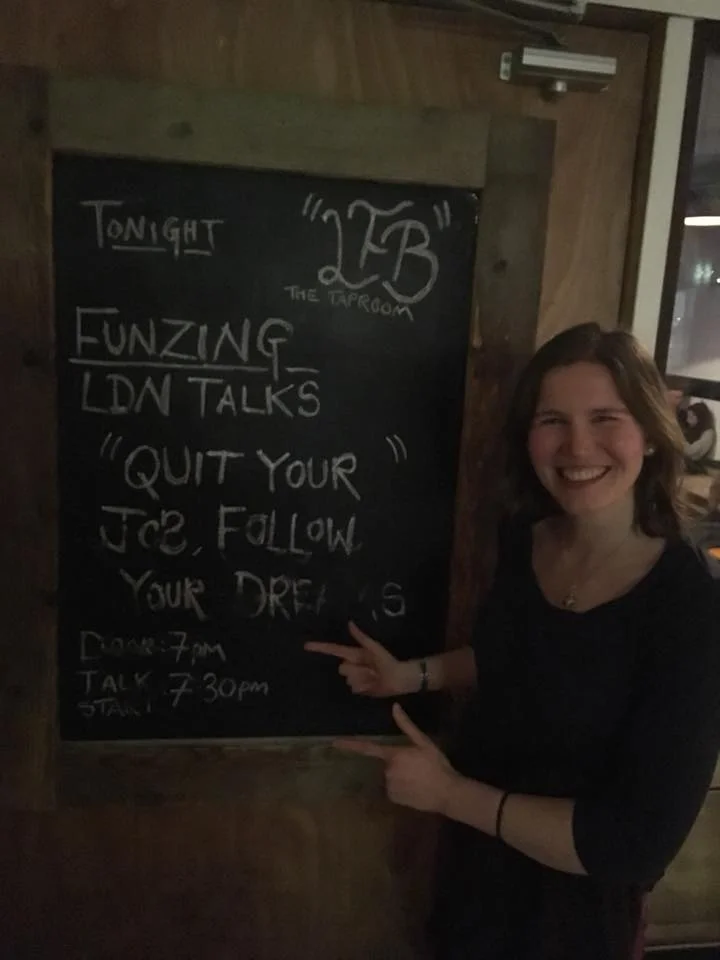 TONIGHT
"LFB"
THE TAPROOM
FUNZING
LDN TALKS
"QUIT YOUR"
JOB, FOLLOW
YOUR
7pm
TALK 7 30pm
START